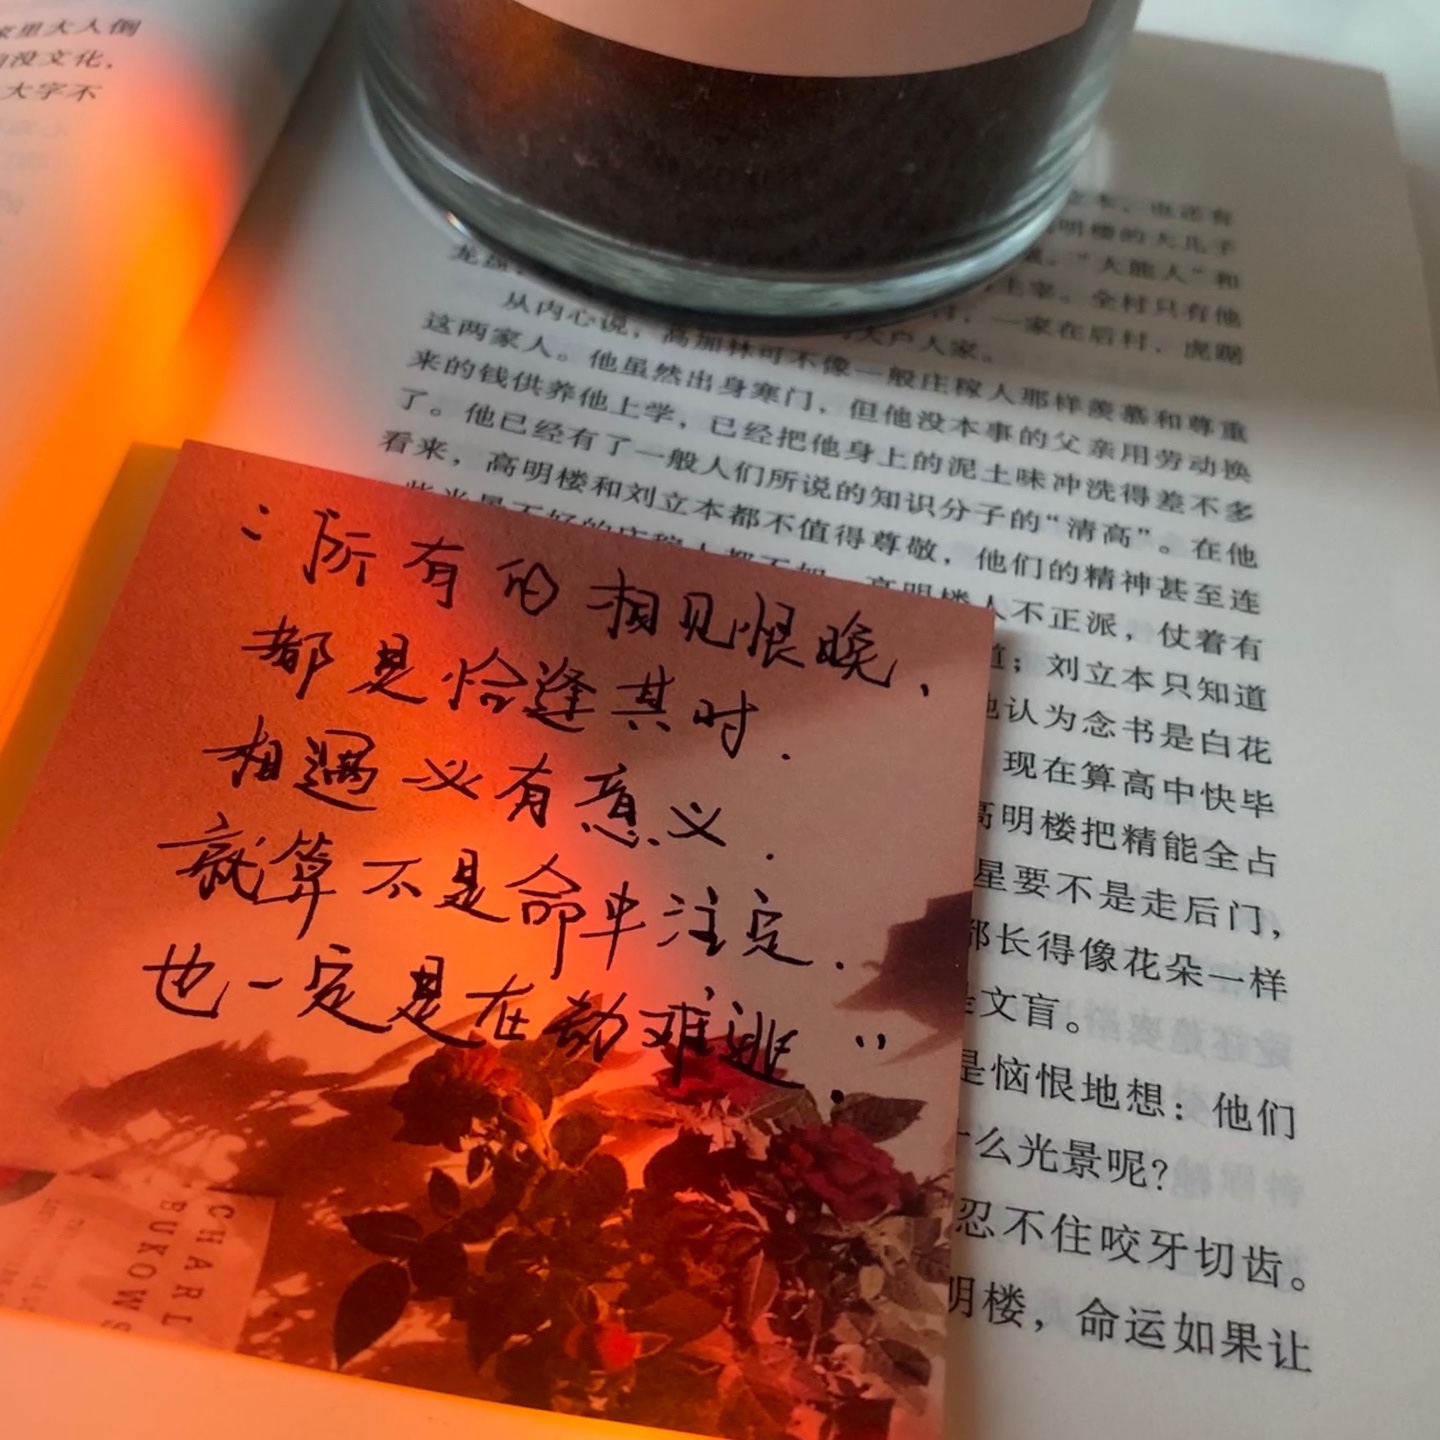 家里大人倒
没文化，
大字不
立本，也还有
明楼的大儿子
。“大能人”和
主宰。全村只有他
，一家在后村，虎踞
龙盘
从内心说，高加林可不像一般庄稼人那样羡慕和尊重
这两家人。他虽然出身寒门，但他没本事的父亲用劳动换
来的钱供养他上学，已经把他身上的泥土味冲洗得差不多
了。他已经有了一般人们所说的知识分子的“清高”。在他
看来，高明楼和刘立本都不值得尊敬，他们的精神甚至连
一些光景不好的庄稼人都不如。高明楼人不正派，仗着有
道；刘立本只知道
他认为念书是白花
现在算高中快毕
高明楼把精能全占
星要不是走后门，
都长得像花朵一样
是文盲。
是恼恨地想：他们
什么光景呢？
忍不住咬牙切齿。
明楼，命运如果让
“所有的相见恨晚，
都是恰逢其时.
相遇必有意义.
就算不是命中注定.
也一定是在劫难逃.”
CHARL
BUKOWS